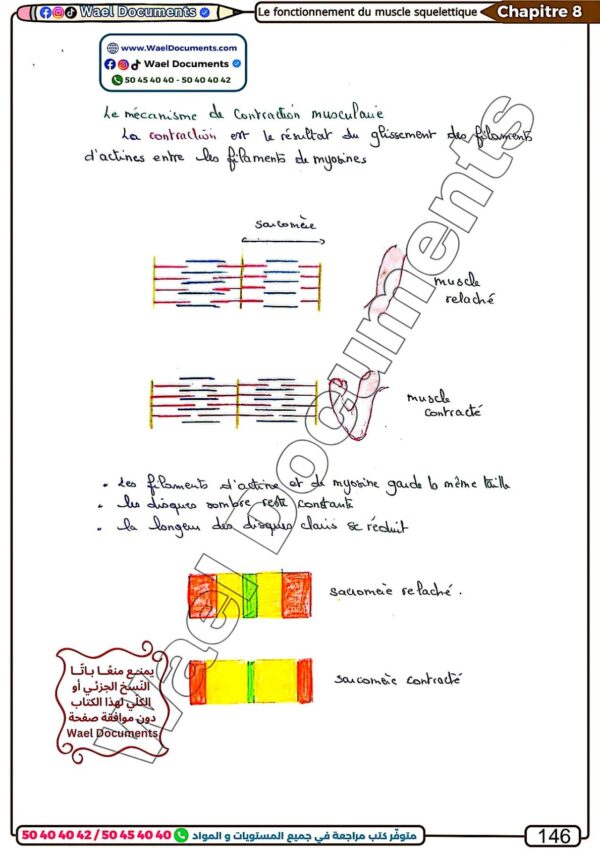 Wael Documents
Le fonctionnement du muscle squelettique
Chapitre 8
www.WaelDocuments.com
Wael Documents
50 45 40 40 - 50 40 40 42
Le mécanisme de contraction musculaire
La contraction est le résultat du glissement des filaments
d'actines entre les filaments de myosines
sarcomère
muscle
relaché
muscle
contracté
. Les filaments d'actine et de myosine garde la même taille
. les disques sombre reste constante
. la longeur des disques clairs se réduit
sarcomère relaché.
sarcomère contracté
Wael Documents
يمنع منعًا باتًا
النّسخ الجزئي أو
الكلّي لهذا الكتاب
دون موافقة صفحة
Wael Documents
50 40 40 42 / 50 45 40 40
متوفّر كتب مراجعة في جميع المستويات و المواد
146